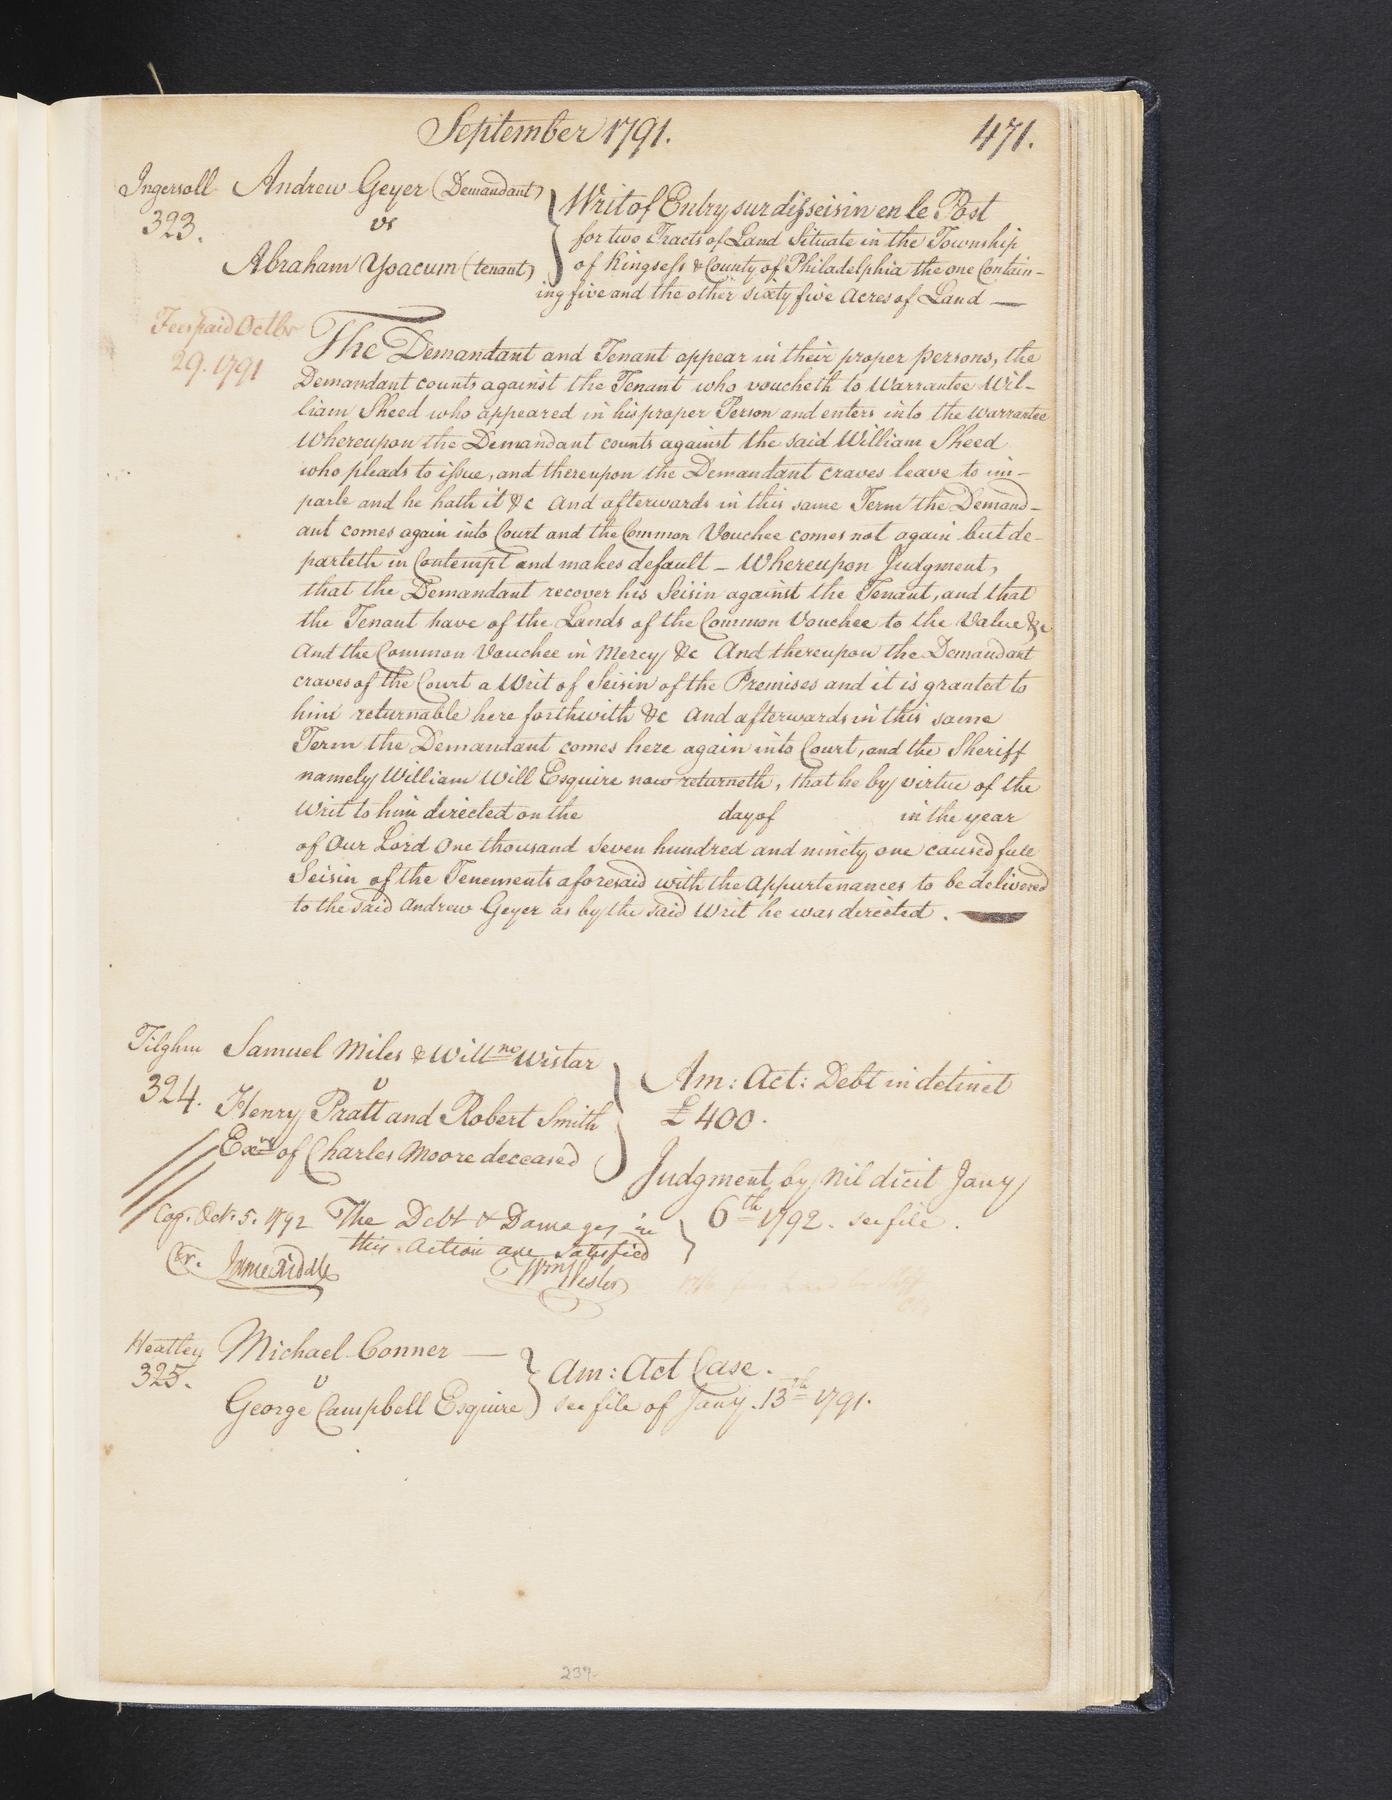 September 1791.
471.
Ingersoll
323.
Andrew Geyer (Demandant)
vs
Abraham Yoacum (tenant)
Writ of Entry sur disseisin en le Post
for two Tracts of Land Situate in the Township
of Kingsess & County of Philadelphia the one Contain-
ing five and the other sixty five Acres of Land —
Fees paid Octbr
29. 1791
The Demandant and Tenant appear in their proper persons, the
Demandant counts against the Tenant who voucheth to Warrantee Wil-
liam Sheed who appeared in his proper Person and enters into the Warrantee
Whereupon the Demandant counts against the said William Sheed
who pleads to issue, and thereupon the Demandant craves leave to im-
parle and he hath it &c And afterwards in this same Term the Demand-
ant comes again into Court and the Common Vouchee comes not again but de-
parteth in Contempt and makes default – Whereupon Judgment,
that the Demandant recover his Seisin against the Tenant, and that
the Tenant have of the Lands of the Common Vouchee to the Value &c
And the Common Vouchee in Mercy &c And thereupon the Demandant
craves of the Court a Writ of Seisin of the Premises and it is granted to
him returnable here forthwith &c And afterwards in this same
Term the Demandant comes here again into Court, and the Sheriff
namely William Will Esquire now returneth, that he by virtue of the
Writ to him directed on the day of in the year
of Our Lord One thousand Seven hundred and ninety one caused full
Seisin of the Tenements aforesaid with the Appurtenances to be delivered
to the said Andrew Geyer as by the said Writ he was directed.
Tilghm
324.
Samuel Miles & Willm Wistar
v
Henry Pratt and Robert Smith
Exrs of Charles Moore deceased
Am: Act: Debt in detinet
£400.
Judgment by Nil dicit Jany
6th 1792. see file.
Cog. Oct. 5. 1792 The Debt & Damages in
this Action are Satisfied
Cor.
Wm
Heatley
325.
Michael Conner —
v
George Campbell Esquire
Am: Act Case.
see file of Jany. 13th 1791.
237